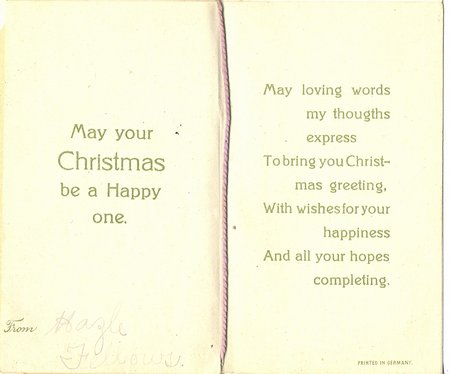 May your
Christmas
be a Happy
one.
From Hazle
Fellows.
May loving words
my thougths
express
To bring you Christ-
mas greeting,
With wishes for your
happiness
And all your hopes
completing.
PRINTED IN GERMANY.